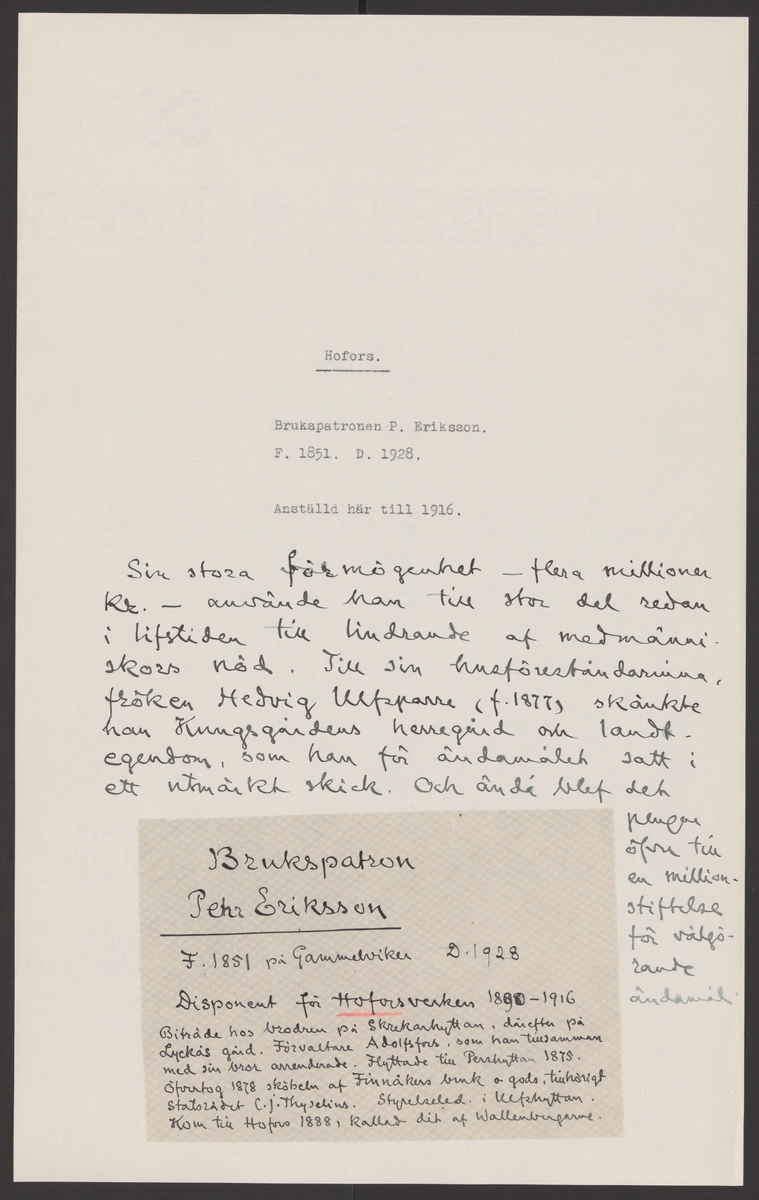 Hofors.
Brukspatronen P. Eriksson.
F. 1851. D. 1928.
Anställd här till 1916.
Sin stora förmögenhet – flera millioner
kr. – använde han till stor del redan
i lifstiden till lindrande af medmänni-
skors nöd. Till sin husföreståndarinna,
fröken Hedvig Ulfsparre (f. 1877) skänkte
han Kungsgårdens herregård och landt-
egendom, som han för ändamålet satt i
ett utmärkt skick. Och ändå blef det
pengar
öfver till
en million-
stiftelse
för välgö-
rande
ändamål.
Brukspatron
Pehr Eriksson
F. 1851 på Gammelviker D. 1928
Disponent för Hoforsverken 1890–1916
Biträde hos brodren på Skrekarhyttan, därefter på
Lyckås gård. Förvaltare Adolfsfors, som han tillsamman
med sin bror arrenderade. Flyttade till Pershyttan 1875.
Öfvertog 1878 skötseln af Finnåkers bruk o. gods, tillhörigt
Statsrådet C. J. Thyselius. Styrelseled. i Ulfshyttan.
Kom till Hofors 1888, kallad dit af Wallenbergarne.